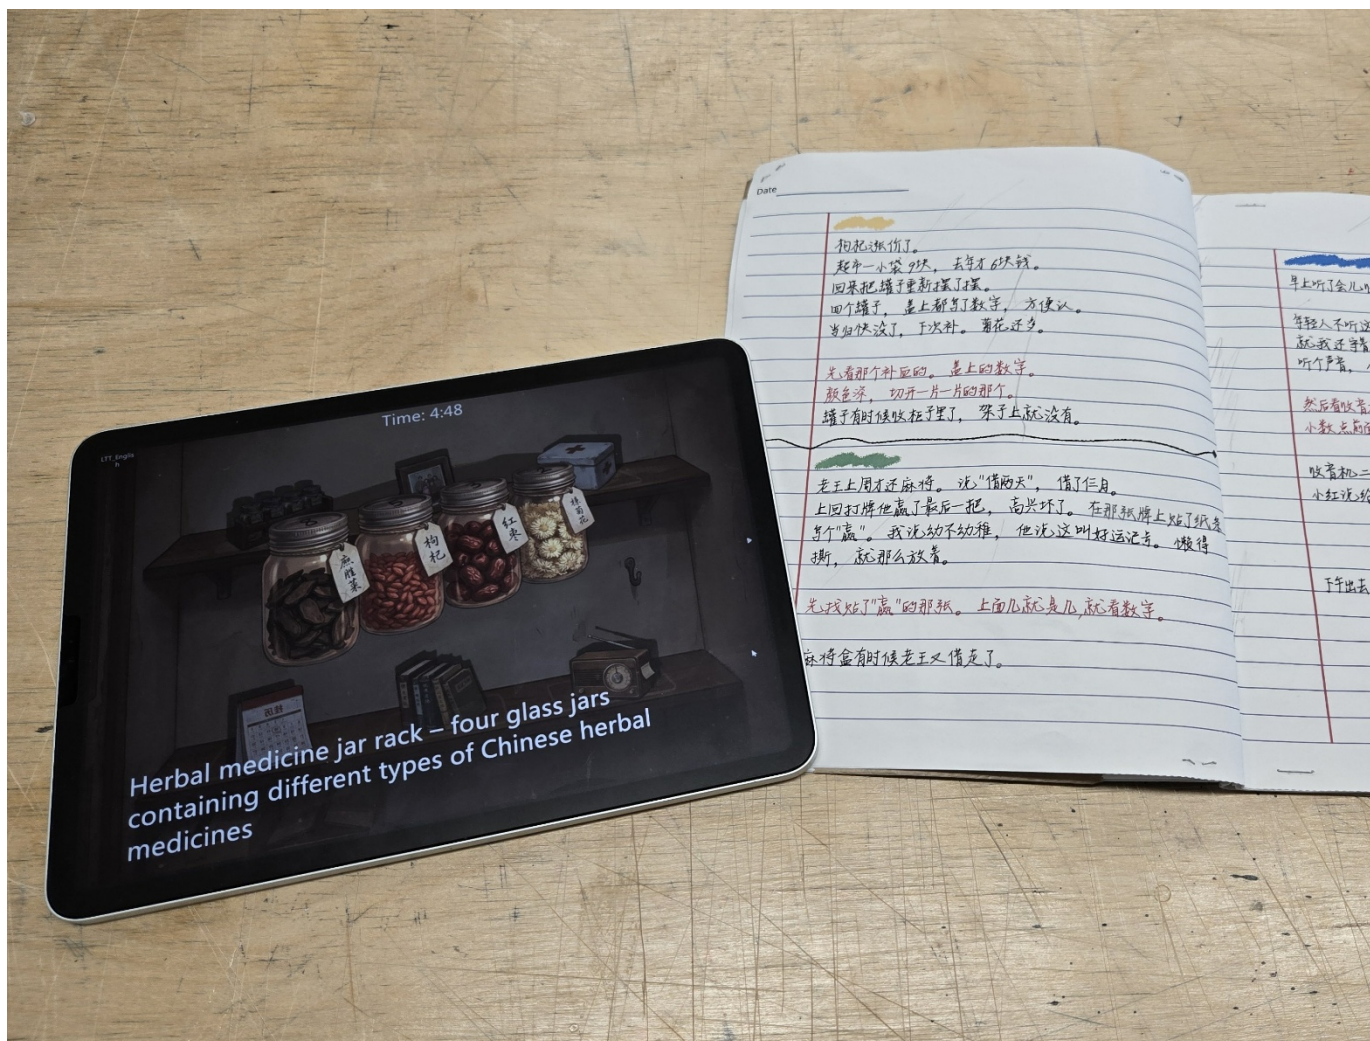 Time: 4:48
枸杞
红枣
Herbal medicine jar rack – four glass jars
containing different types of Chinese herbal
medicines
Date
枸杞涨价了。
超市一小袋9块，去年才6块钱。
回来把罐子重新摆了摆。
四个罐子，盖上都写了数字，方便认。
当归快没了，下次补。菊花还多。
先看那个补血的。盖上的数字。
颜色深，切开一片一片的那个。
罐子有时候收柜子里了，架子上就没有。
老王上周才还麻将。说"借两天"，借了仨月。
上回打牌他赢了最后一把，高兴坏了。在那张牌上贴了纸条
写个"赢"。我说幼不幼稚，他说这叫好运记号。懒得
撕，就那么放着。
先找贴了"赢"的那张。上面几就是几，就看数字。
麻将盒有时候老王又借走了。
早上听了会儿
年轻人不听这
就我还守着
听个声音，
然后看收音
小数点前
收音机二
小红说给
下午出去